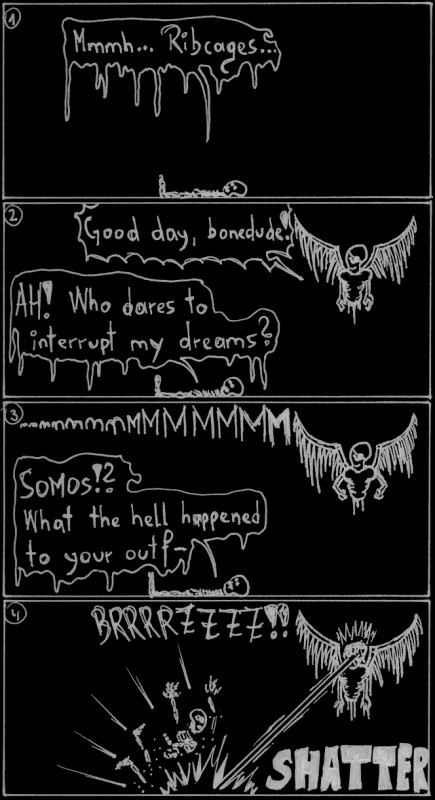 1
Mmmh... Ribcages...
2
Good day, bonedude!
AH! Who dares to
interrupt my dreams?
3
mmmmmmmMMMMMMM
SOMOS!?
What the hell happened
to your outf-
4
BRRRRZZZZ!!
SHATTER